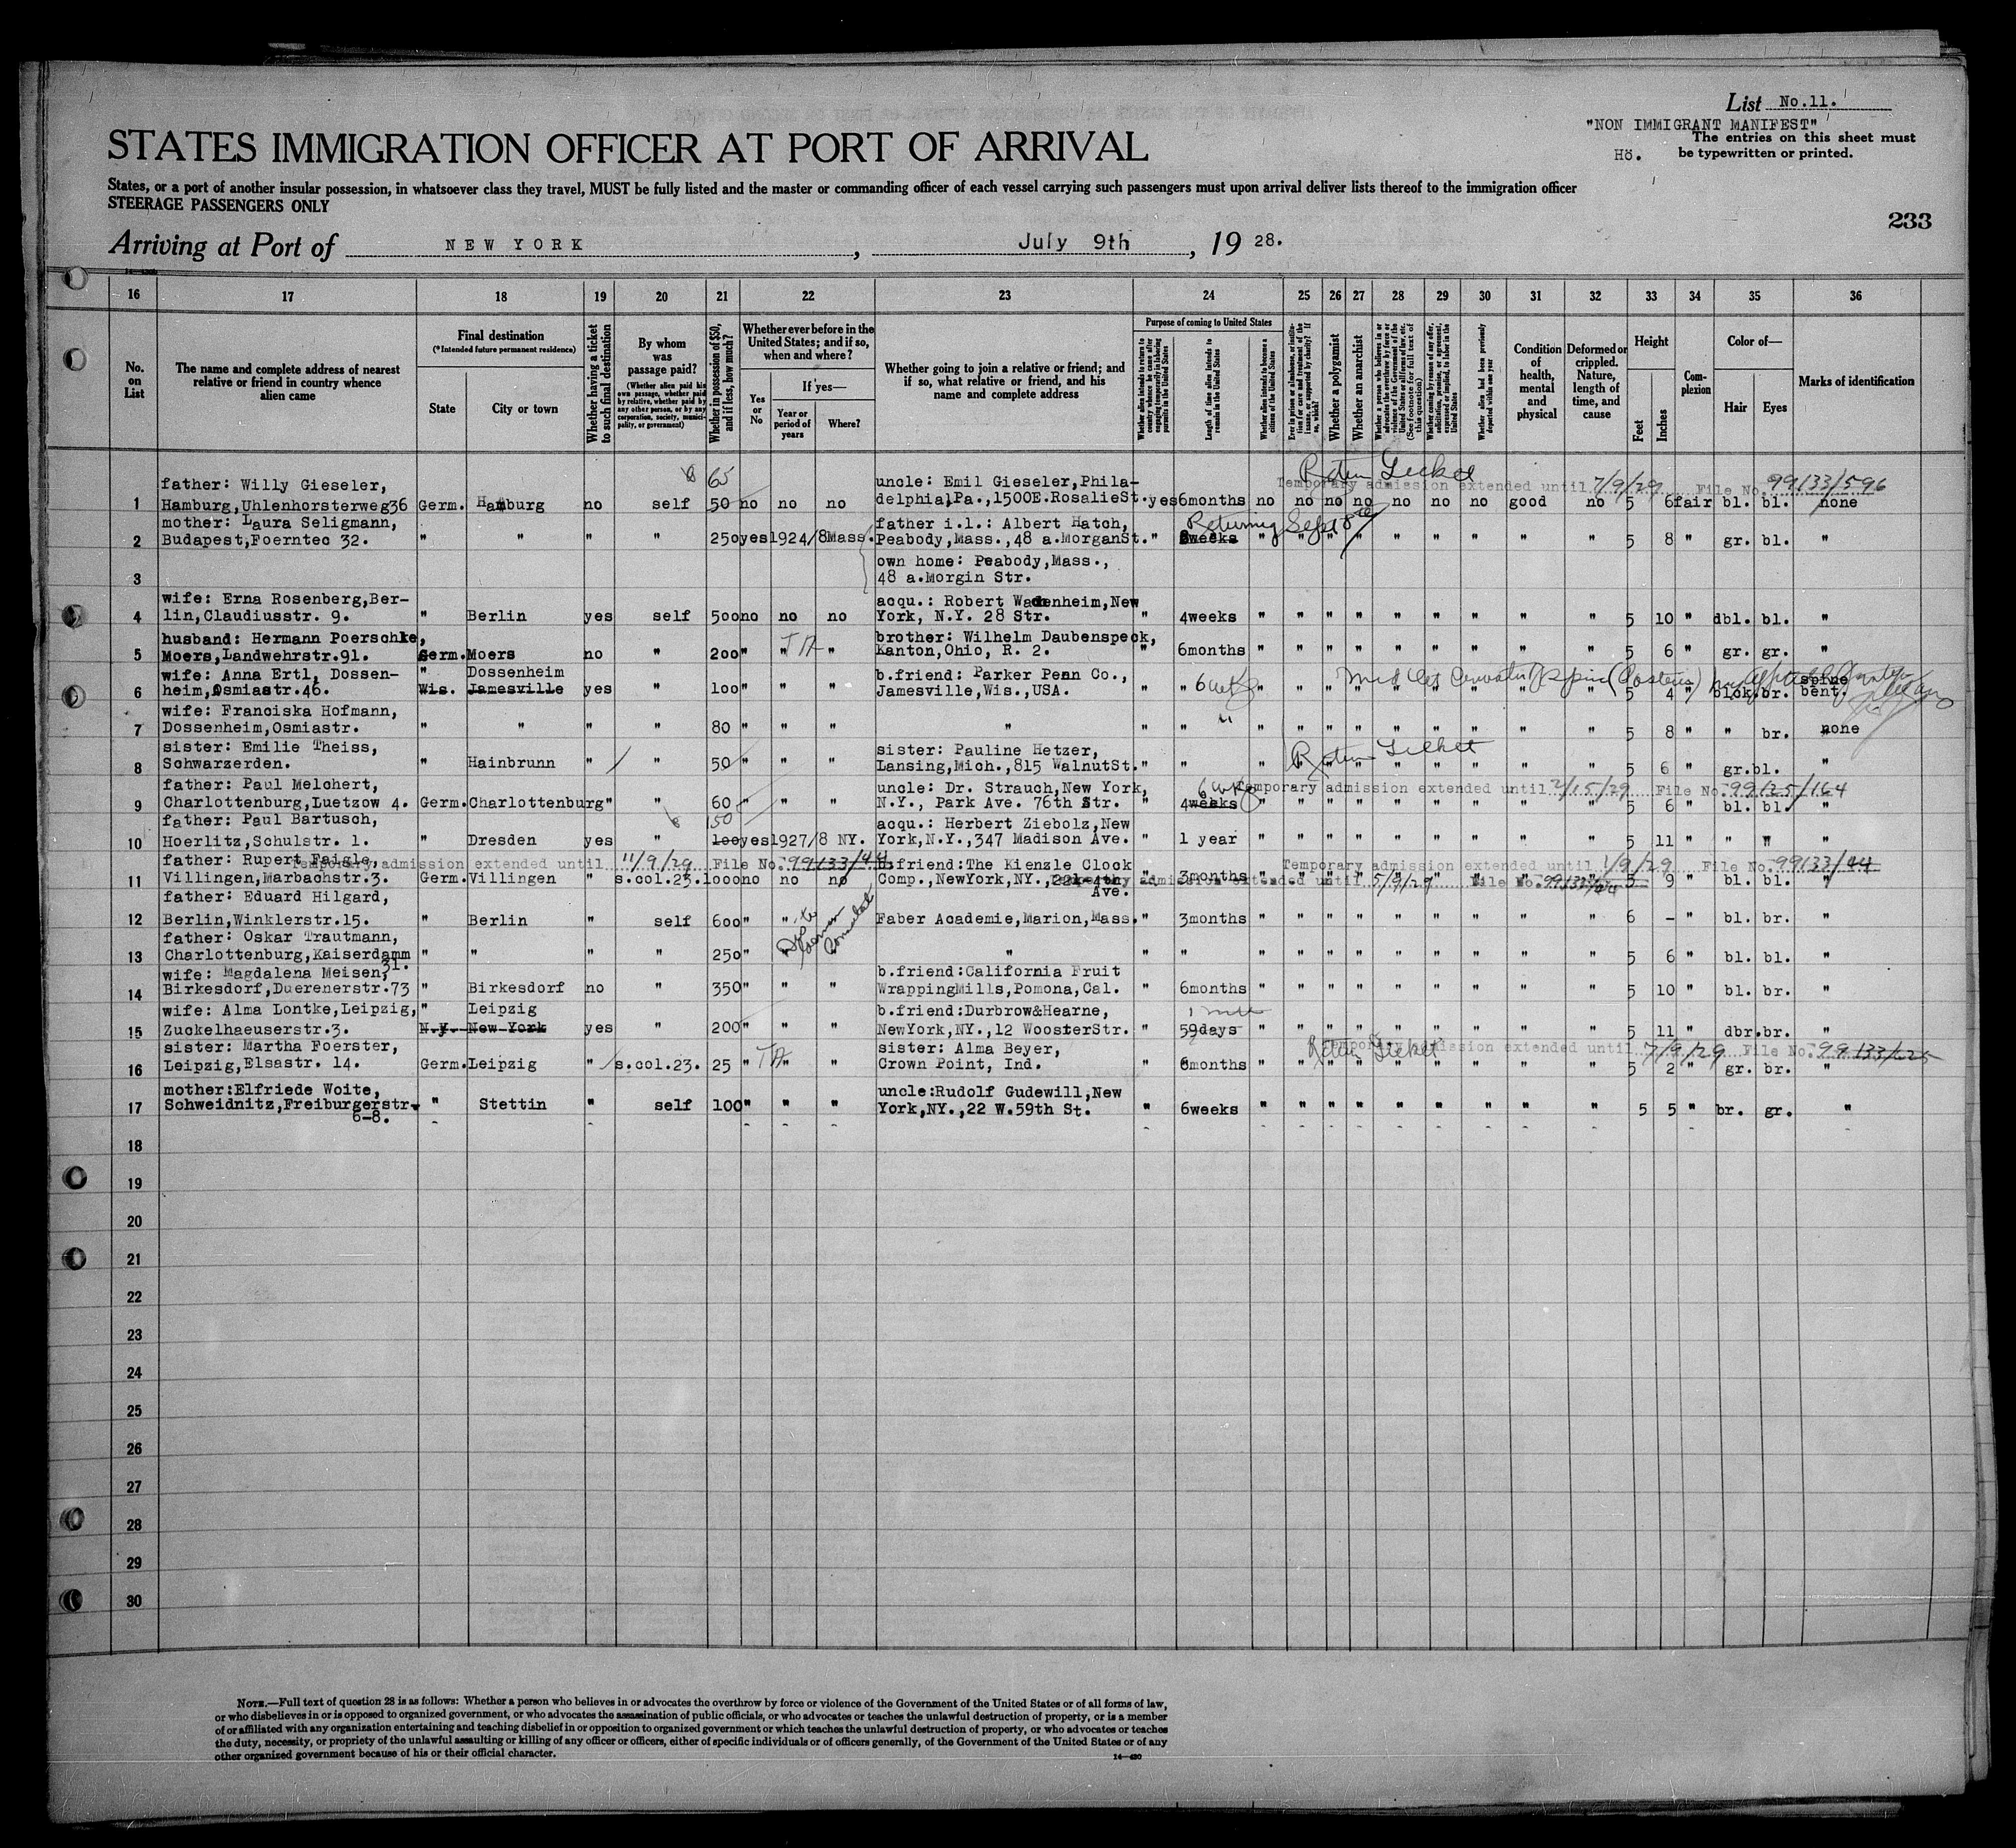 List No.11.
"NON IMMIGRANT MANIFEST"
The entries on this sheet must
Hö. be typewritten or printed.
STATES IMMIGRATION OFFICER AT PORT OF ARRIVAL
States, or a port of another insular possession, in whatsoever class they travel, MUST be fully listed and the master or commanding officer of each vessel carrying such passengers must upon arrival deliver lists thereof to the immigration officer
STEERAGE PASSENGERS ONLY
233
Arriving at Port of NEW YORK, July 9th, 19 28.
16 17 18 19 20 21 22 23 24 25 26 27 28 29 30 31 32 33 34 35 36
No. on List
The name and complete address of nearest relative or friend in country whence alien came
Final destination
(*Intended future permanent residence)
State
City or town
Whether having a ticket to such final destination
By whom was passage paid?
(Whether alien paid his own passage, whether paid by relative, whether paid by any other person, or by any corporation, society, municipality, or government)
Whether in possession of $50, and if less, how much?
Whether ever before in the United States; and if so, when and where?
Yes or No
If yes—
Year or period of years
Where?
Whether going to join a relative or friend; and if so, what relative or friend, and his name and complete address
Purpose of coming to United States
Whether alien intends to return to country whence he came after engaging temporarily in laboring pursuits in the United States
Length of time alien intends to remain in the United States
Whether alien intends to become a citizen of the United States
Ever in prison or almshouse, or institution for care and treatment of the insane, or supported by charity? If so, which?
Whether a polygamist
Whether an anarchist
Whether a person who believes in or advocates the overthrow by force or violence of the Government of the United States or all forms of law, etc. (See footnote for full text of this question)
Whether coming by reason of any offer, solicitation, promise, or agreement, expressed or implied, to labor in the United States
Whether alien had been previously deported within one year
Condition of health, mental and physical
Deformed or crippled. Nature, length of time, and cause
Height
Feet
Inches
Complexion
Color of—
Hair
Eyes
Marks of identification
65 Return Ticket
father: Willy Gieseler, uncle: Emil Gieseler, Phila- Temporary admission extended until 7/9/29 File No. 99133/596
1 Hamburg,Uhlenhorsterweg36 Germ. Hamburg no self 50 no no no delphia,Pa.,1500E.RosalieSt. yes 6months no no no no no no no good no 5 6 fair bl. bl. none
mother: Laura Seligmann, father i.l.: Albert Hatch, Returning Sept 8th
2 Budapest,Foerntec 32. " " " " 250 yes 1924/8 Mass. Peabody,Mass.,48 a.MorganSt. " 8weeks " " " " " " " " " 5 8 " gr. bl. "
own home: Peabody,Mass.,
3 48 a.Morgin Str.
wife: Erna Rosenberg,Ber- acqu.: Robert Wachenheim,New
4 lin,Claudiusstr. 9. " Berlin yes self 500 no no no York, N.Y. 28 Str. " 4weeks " " " " " " " " " 5 10 " dbl. bl. "
husband: Hermann Poerschke, brother: Wilhelm Daubenspeck,
5 Moers,Landwehrstr.91. Germ. Moers no " 200 " " " Kanton,Ohio, R. 2. " 6months " " " " " " " " " 5 6 " gr. gr. "
wife: Anna Ertl, Dossen- " Dossenheim b.friend: Parker Penn Co., spine
6 heim,Osmiastr.46. Wis. Jamesville yes " 100 " " " Jamesville,Wis.,USA. " 6 wks " " " 5 4 " blck. br. bent.
wife: Franciska Hofmann,
7 Dossenheim,Osmiastr. " " " " 80 " " " " " " " " " " " " " " " " 5 8 " " br. none
sister: Emilie Theiss, sister: Pauline Hetzer, Return Ticket
8 Schwarzerden. " Hainbrunn " " 50 " " " Lansing,Mich.,815 WalnutSt. " " " " " " " " " " " 5 6 " gr. bl. "
father: Paul Melchert, uncle: Dr. Strauch,New York, 6 wks Temporary admission extended until 2/15/29 File No. 99125/164
9 Charlottenburg,Luetzow 4. Germ. Charlottenburg " " 60 " " " N.Y., Park Ave. 76th Str. " 4weeks " " " " " " " " " 5 6 " bl. bl. "
father: Paul Bartusch, 50 acqu.: Herbert Ziebolz,New
10 Hoerlitz,Schulstr. 1. " Dresden yes " 100 yes 1927/8 NY. York,N.Y.,347 Madison Ave. " 1 year " " " " " " " " " 5 11 " " " "
father: Rupert Faigle, Temporary admission extended until 11/9/29 File No. 99133/44 b.friend:The Kienzle Clock Temporary admission extended until 1/9/29 File No. 99133/44
11 Villingen,Marbachstr.3. Germ. Villingen " s.col.23. 1000 no no no Comp.,NewYork,NY.,221 4th Ave. " 3months " Temporary admission extended until 5/9/29 File No. 99133/44 5 9 " bl. bl. "
father: Eduard Hilgard,
12 Berlin,Winklerstr.15. " Berlin " self 600 " " Faber Academie,Marion,Mass. " 3months " " " " " " " " " 6 - " bl. br. "
father: Oskar Trautmann,
13 Charlottenburg,Kaiserdamm 31. " " " " 250 " " " " " " " " " " " " " " " 5 6 " bl. bl. "
wife: Magdalena Meisen, b.friend:California Fruit
14 Birkesdorf,Duerenerstr.73 " Birkesdorf no " 350 " " " WrappingMills,Pomona,Cal. " 6months " " " " " " " " " 5 10 " bl. br. "
wife: Alma Lontke,Leipzig, " Leipzig b.friend:Durbrow&Hearne,
15 Zuckelhaeuserstr.3. N.Y. New York yes " 200 " " " NewYork,NY.,12 WoosterStr. " 59days " " " " " " " " " 5 11 " dbr. br. "
sister: Martha Foerster, sister: Alma Beyer, Return Ticket Temporary admission extended until 7/9/29 File No. 99133/225
16 Leipzig,Elsastr. 14. Germ. Leipzig " s.col.23. 25 " " " Crown Point, Ind. " 6months " " " " " " " " " 5 2 " gr. br. "
mother:Elfriede Woite, uncle:Rudolf Gudewill,New
17 Schweidnitz,Freiburgerstr. 6-8. " Stettin " self 100 " " " York,NY.,22 W.59th St. " 6weeks " " " " " " " " " 5 5 " br. gr. "
18
19
20
21
22
23
24
25
26
27
28
29
30
NOTE.—Full text of question 28 is as follows: Whether a person who believes in or advocates the overthrow by force or violence of the Government of the United States or of all forms of law,
or who disbelieves in or is opposed to organized government, or who advocates the assassination of public officials, or who advocates or teaches the unlawful destruction of property, or is a member
of or affiliated with any organization entertaining and teaching disbelief in or opposition to organized government or which teaches the unlawful destruction of property, or who advocates or teaches
the duty, necessity, or propriety of the unlawful assaulting or killing of any officer or officers, either of specific individuals or of officers generally, of the Government of the United States or of any
other organized government because of his or their official character.
14—420